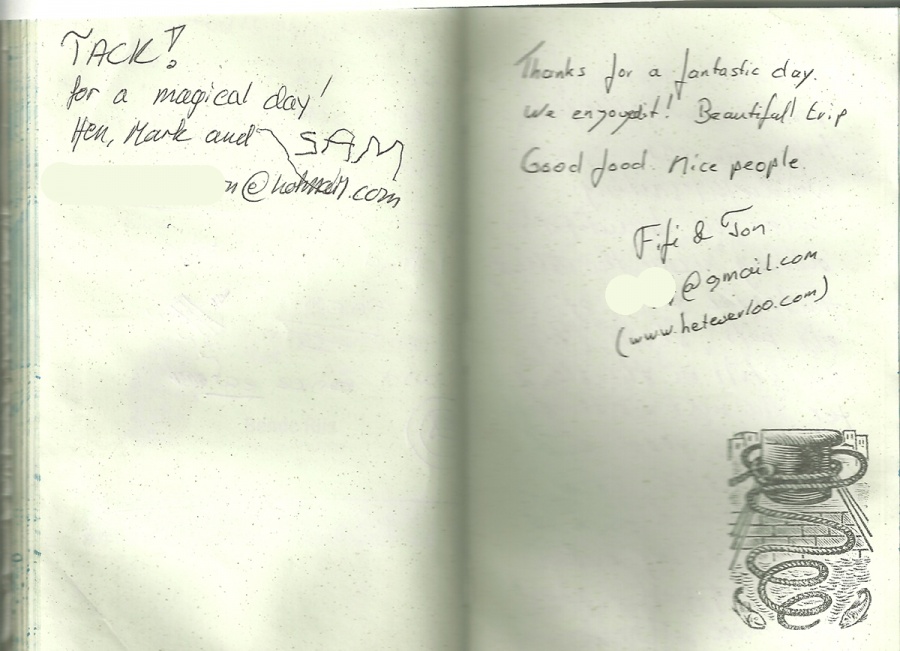 TACK!
for a magical day!
Hen, Mark and SAM
n@hotmail.com
Thanks for a fantastic day.
We enjoyedit! Beautiful trip
Good food. Nice people.
Fifi & Ton
@gmail.com
(www.heteverloo.com)